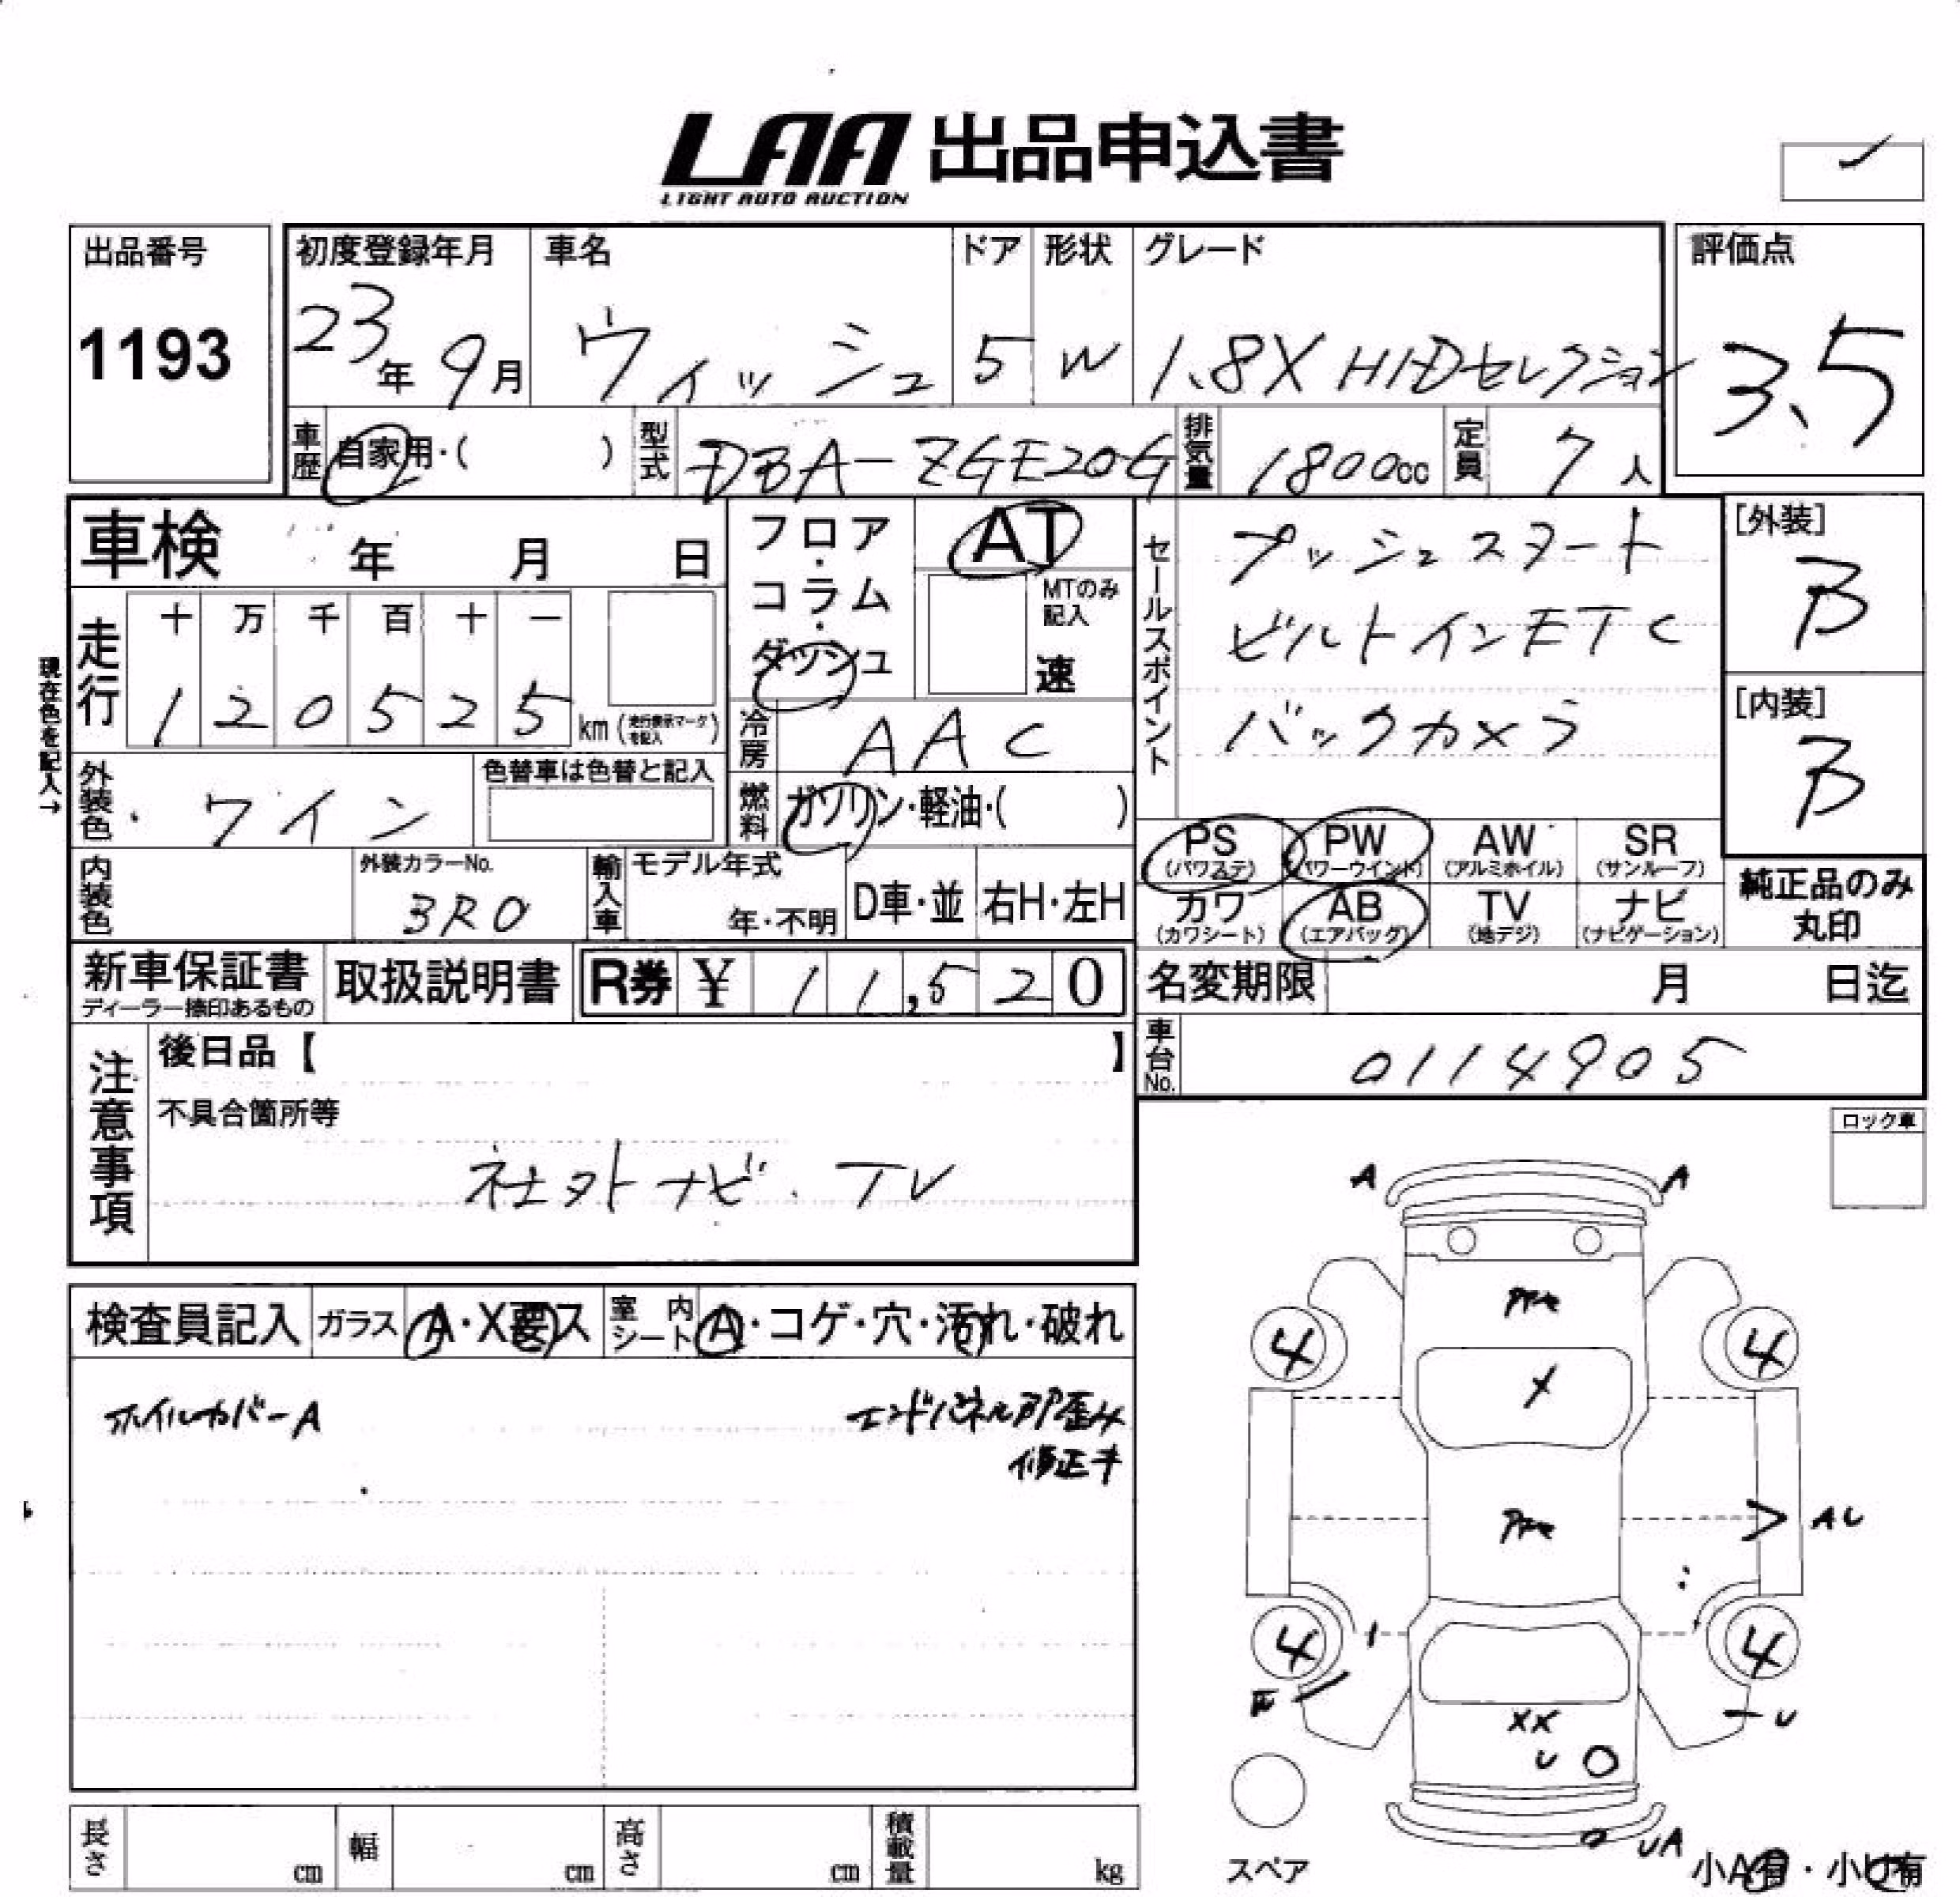 LAA 出品申込書
LIGHT AUTO AUCTION
出品番号
1193
初度登録年月
23年 9月
車名
ウィッシュ
ドア
5
形状
W
グレード
1.8X HIDセレクション
評価点
3.5
車歴
自家用・( )
型式
DBA-ZGE20G
排気量
1800cc
定員
7人
車検 年 月 日
現在色を記入→
走行
十 万 千 百 十 一
1 2 0 5 2 5 km (走行表示マークを記入)
フロア・コラム・ダッシュ
AT
MTのみ記入
速
冷房
AAC
燃料
ガソリン・軽油・( )
セールスポイント
プッシュスタート
ビルトインETC
バックカメラ
[外装]
B
[内装]
B
外装色
ワイン
色替車は色替と記入
内装色
外装カラーNo.
3R0
輸入車
モデル年式
年・不明
D車・並
右H・左H
PS (パワステ)
PW (パワーウインド)
AW (アルミホイル)
SR (サンルーフ)
カワ (カワシート)
AB (エアバッグ)
TV (地デジ)
ナビ (ナビゲーション)
純正品のみ
丸印
新車保証書
ディーラー捺印あるもの
取扱説明書
R券 ¥ 11,520
名変期限 月 日迄
車台No.
0114905
注意事項
後日品【 】
不具合箇所等
社外ナビ. TV
ロック車
検査員記入
ガラス
A・X要ス
室内シート
A・コゲ・穴・汚れ・破れ
ホイルカバーA
エンドパネル部歪み
修正キ
A A
4 4
X
AU
4 4
U
XX
U
UA
スペア
小A有・小U有
長さ cm
幅 cm
高さ cm
積載量 kg